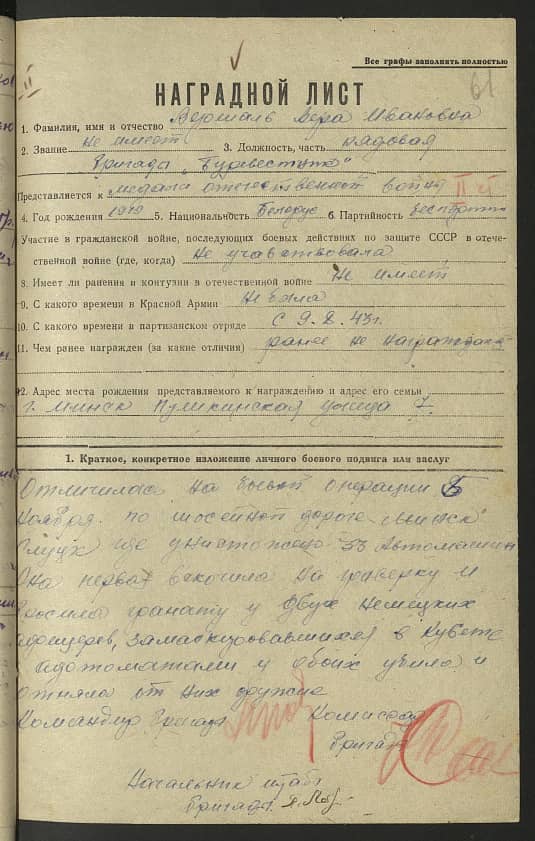 Все графы заполнять полностью
61
II
НАГРАДНОЙ ЛИСТ
1. Фамилия, имя и отчество Вера Ивановна
2. Звание не имеет 3. Должность, часть рядовая
Бригады „Буревестник"
Представляется к медали отечественной война II ст
4. Год рождения 1919 5. Национальность Белорус 6. Партийность беспартт
Участие в гражданской войне, последующих боевых действиях по защите СССР в отече-
ственной войне (где, когда) не участвовала
8. Имеет ли ранения и контузии в отечественной войне Не имеет
9. С какого времени в Красной Армии Не была
10. С какого времени в партизанском отряде С 9.X.43г.
11. Чем ранее награжден (за какие отличия) ранее не награждал
12. Адрес места рождения представляемого к награждению и адрес его семьи
г. Минск Пушкинская улица 7.
1. Краткое, конкретное изложение личного боевого подвига или заслуг
Отличилась на боевой операции 6
Ноября по шосейной дороге Минск
Слуцк где уничтожено 33 Автомашин
Она первая вскочила на и
бросила гранату у двух Немецких
офицеров, замаскировавшихся в кувете
с автоматами и обоих убила и
отняла от них оружие
Командир бригады Комиссар
бригады
Начальник штаба
бригады